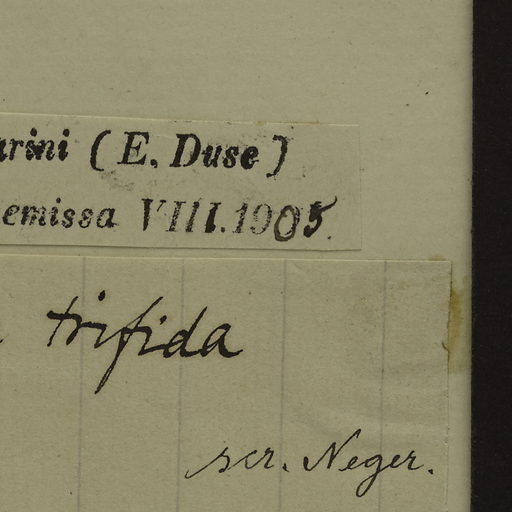 arini (E. Duse)
emissa VIII.1905.
trifida
scr. Neger.